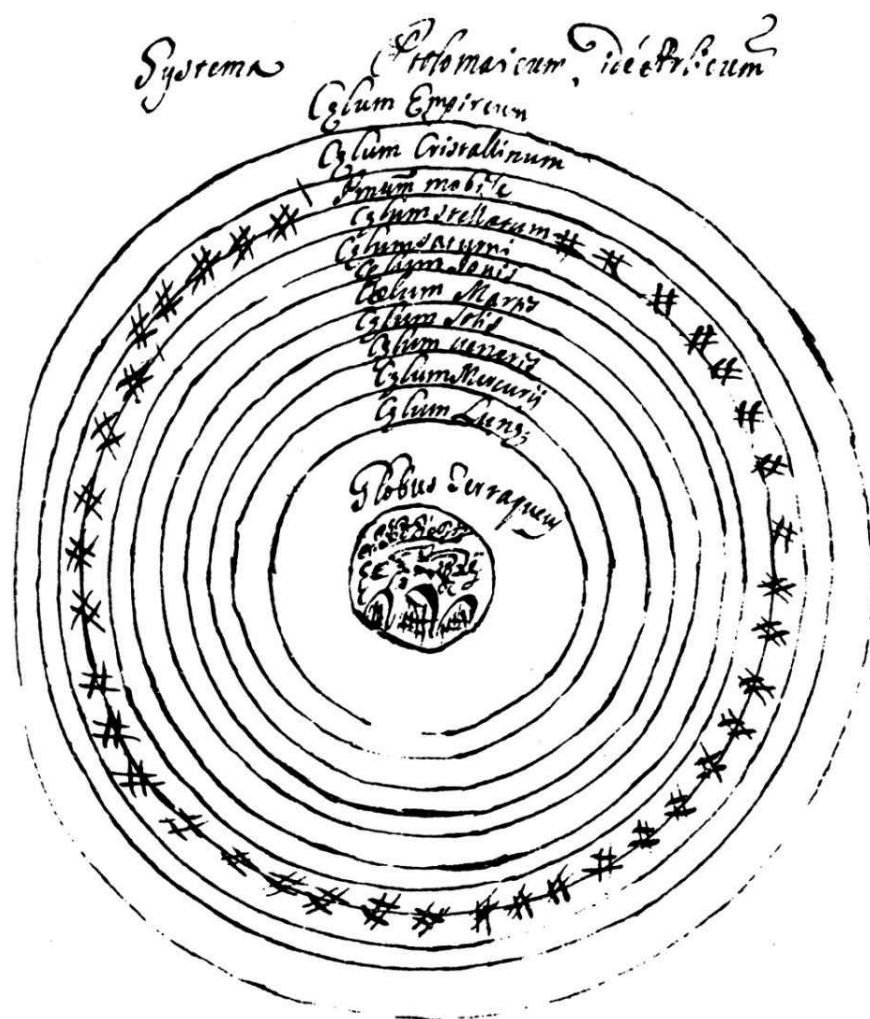 Systema Ptolomaicum
Cęlum Empireum
Cęlum Cristallinum
Primum mobile
Cęlum stellatum
Cęlum Saturni
Cęlum Jovis
Cælum Martis
Cęlum Solis
Cęlum veneris
Cęlum Mercurij
Cęlum Lunę
Globus Terraqueus